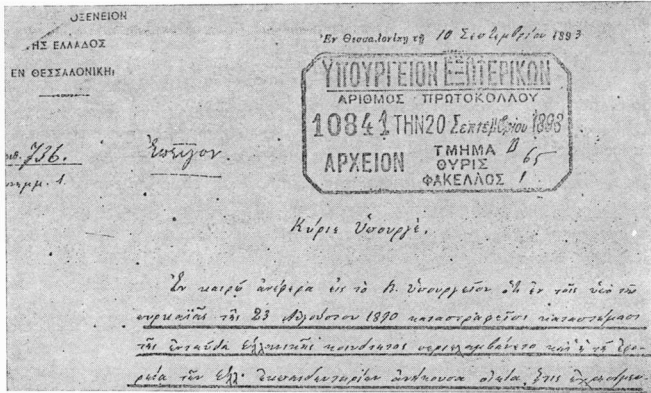 ΟΞΕΝΕΙΟΝ
ΗΣ ΕΛΛΑΔΟΣ
ΕΝ ΘΕΣΣΑΛΟΝΙΚΗι
Ἐν Θεσσαλονίκῃ τῇ 10 Σεπτεμβρίου 1893
ΥΠΟΥΡΓΕΙΟΝ ΕΞΩΤΕΡΙΚΩΝ
ΑΡΙΘΜΟΣ ΠΡΩΤΟΚΟΛΛΟΥ
10841 ΤΗΝ 20 Σεπτεμβρίου 1893
ΑΡΧΕΙΟΝ
ΤΜΗΜΑ
ΘΥΡΙΣ 65
ΦΑΚΕΛΛΟΣ 1
ιθ. 736.
Ἐπεῖγον.
Κύριε Ὑπουργέ,
Ἐν καιρῷ ἀνέφερα εἰς τὸ Β. Ὑπουργεῖον ὅτι ἐν τοῖς ὑπὸ τῆς
πυρκαϊᾶς τῆς 23 Αὐγούστου 1890 καταστραφεῖσι καταστήμασι
τῆς ἐνταῦθα ἑλληνικῆς κοινότητος περιελαμβάνετο καὶ ἡ τῇ ἐφο-
ρεία τῶν ἑλλ. ἐκπαιδευτηρίων ἀνήκουσα οἰκία, ἥτις ἐχρησίμευ-